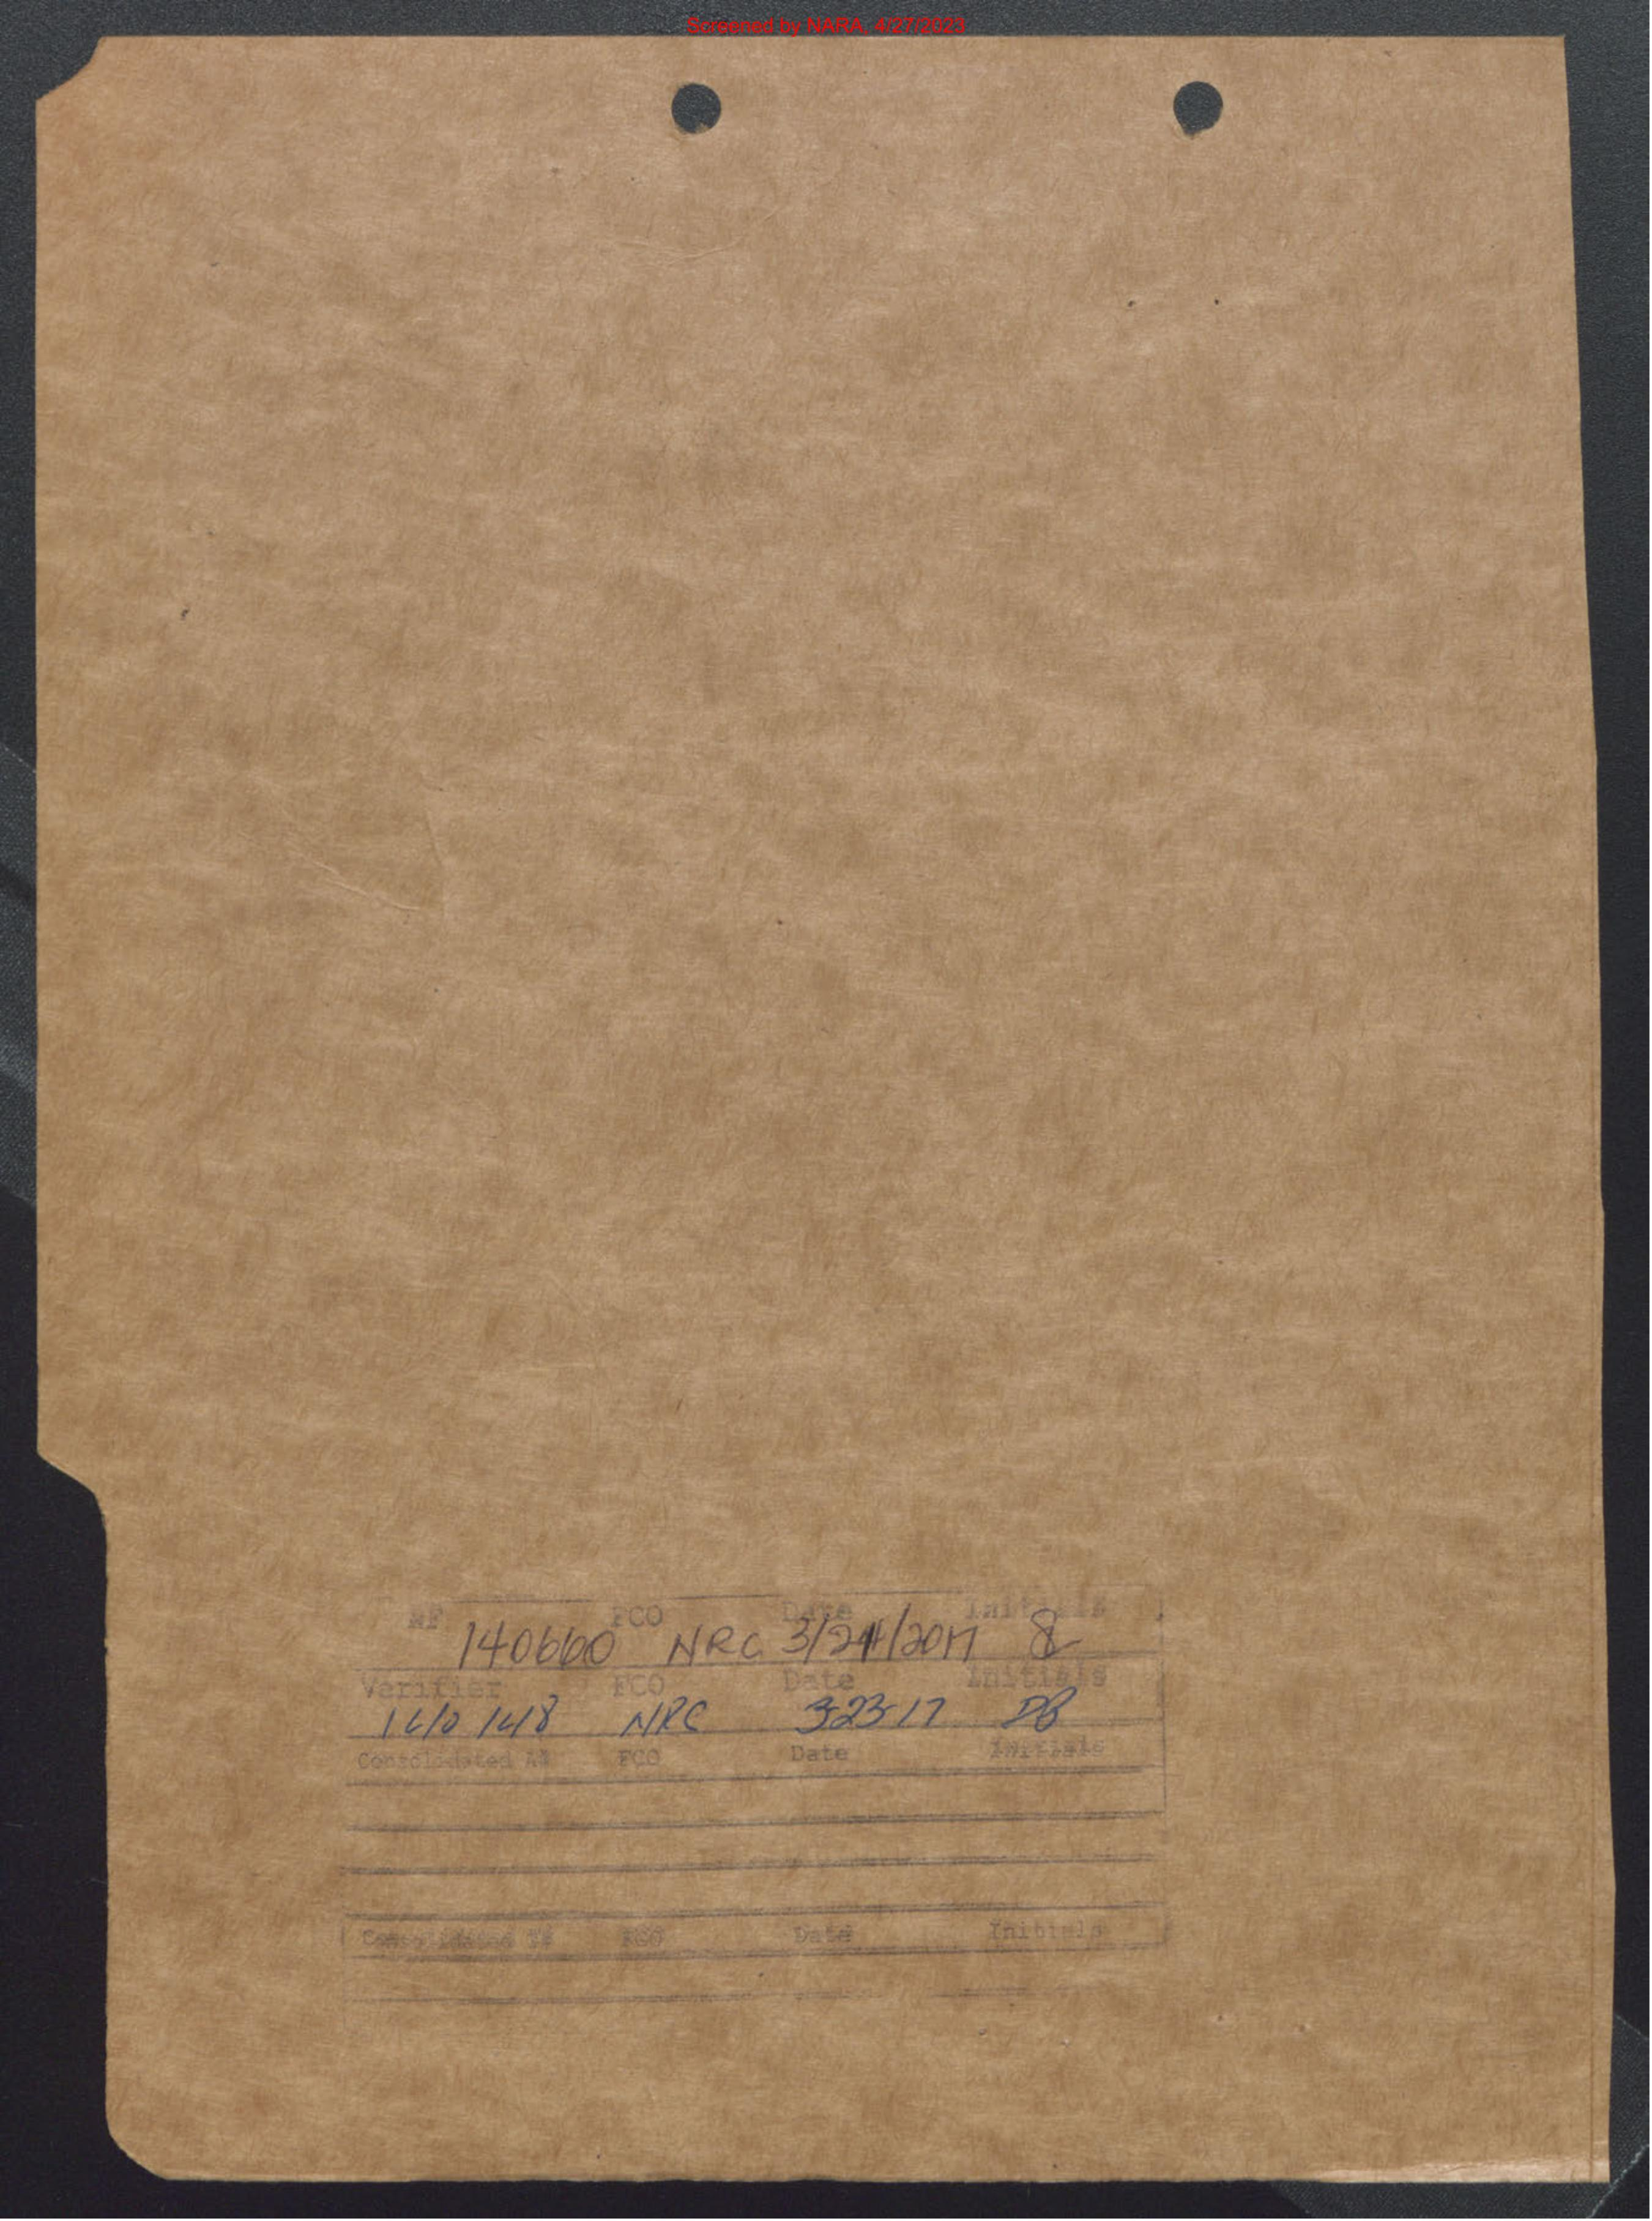 Screened by NARA, 4/27/2023
AF FCO Date Initials
140660 NRC 3/24/2017
Verifier FCO Date Initials
NRC 3-23-17 DB
Consolidated A# FCO Date Initials
Consolidated FCO Date Initials